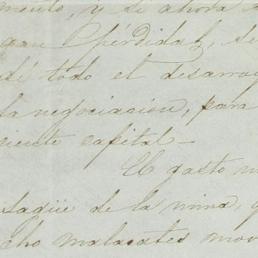 mento, y si ahora
gan pérdidas, se
dé todo el desarro
la negociacion, para
ciente capital—
El gasto m
isagüe de la mina, q
cho malacates mov